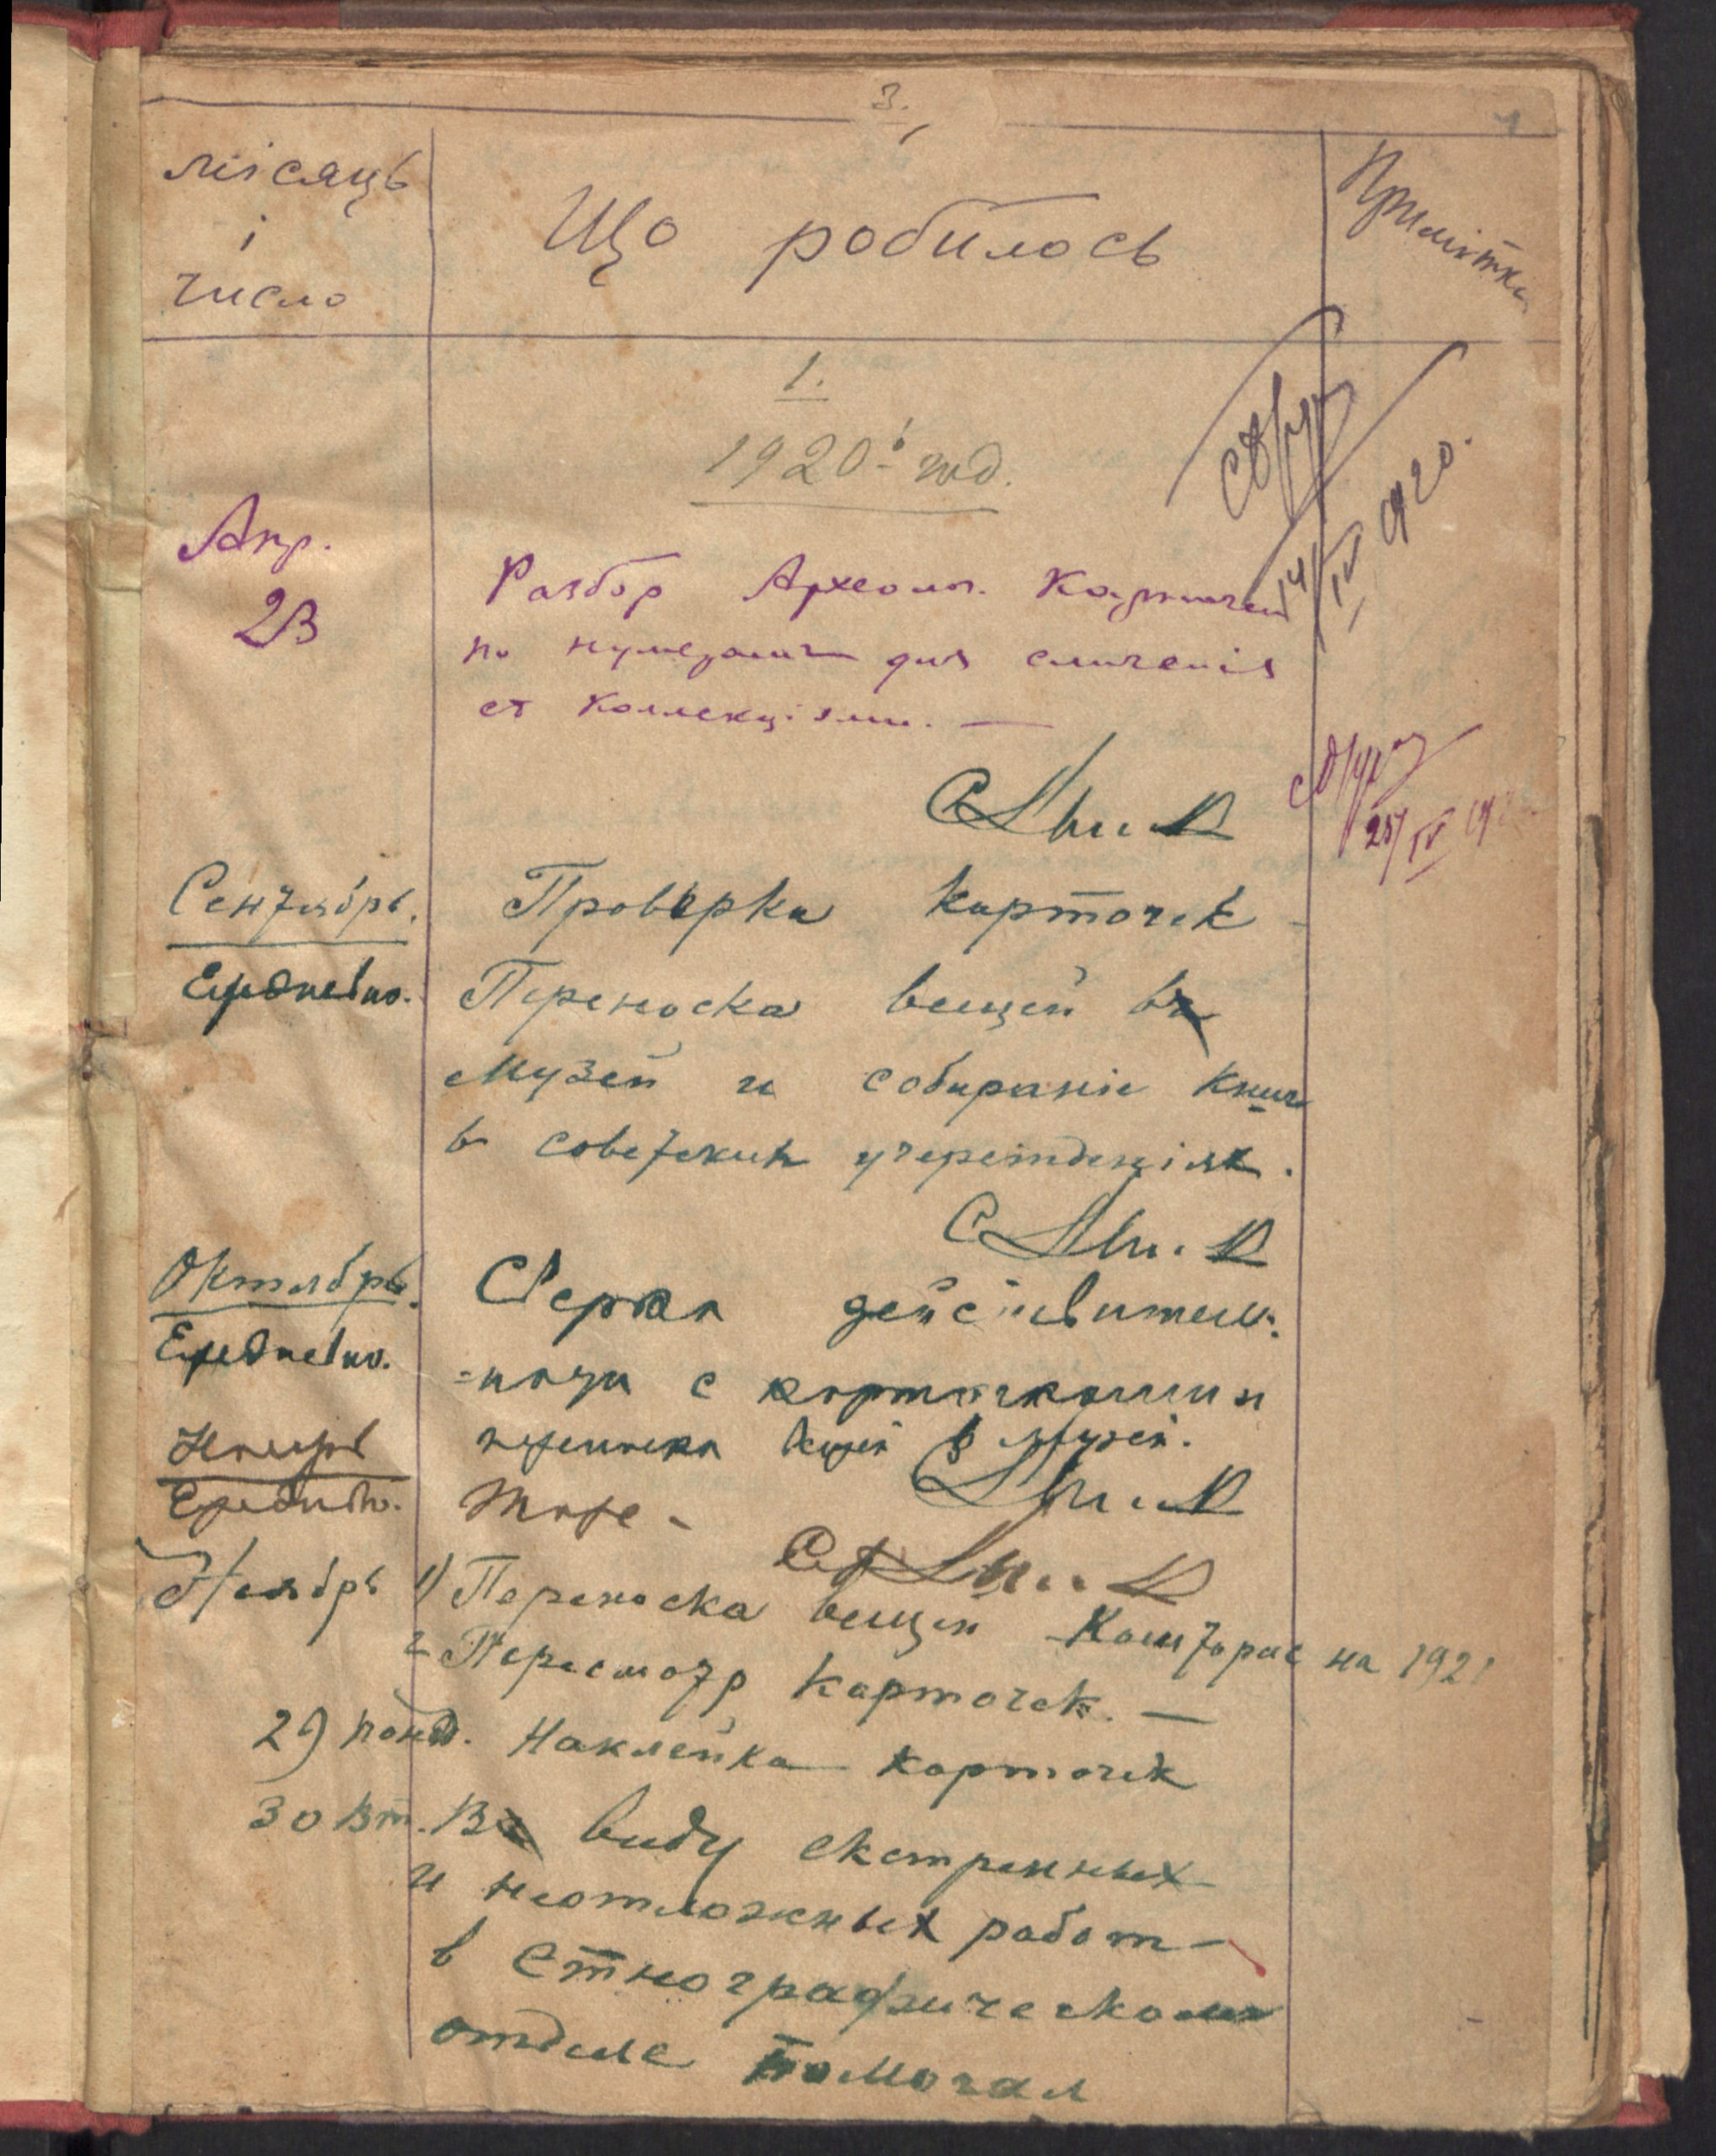 3.
місяць
і
число
Що робилось
Примітка
1.
1920й год.
14/IV 1920.
Апр.
23
Разбор Археолог. Карточек
по нумерации для сличенія
съ коллекціями. —
25/IV
Сентябрь.
Ежедневно.
Проверка карточек
Переноска вещей в
музей и собираніе книг
в советских учрежденіях.
Октябрь.
Ежедневно.
Сверка действитель-
=ности с карточками и
переноска вещей в музей.
Ноябрь
Ежедневно.
Тоже -
Ноябрь
1) Переноска вещей Кошторис на 1921
2 Пересмотр карточек. —
29 понед. Наклейка карточек
30 Вт. В виду екстренных
и неотложных работ
в Етнографическом
отделе помогал